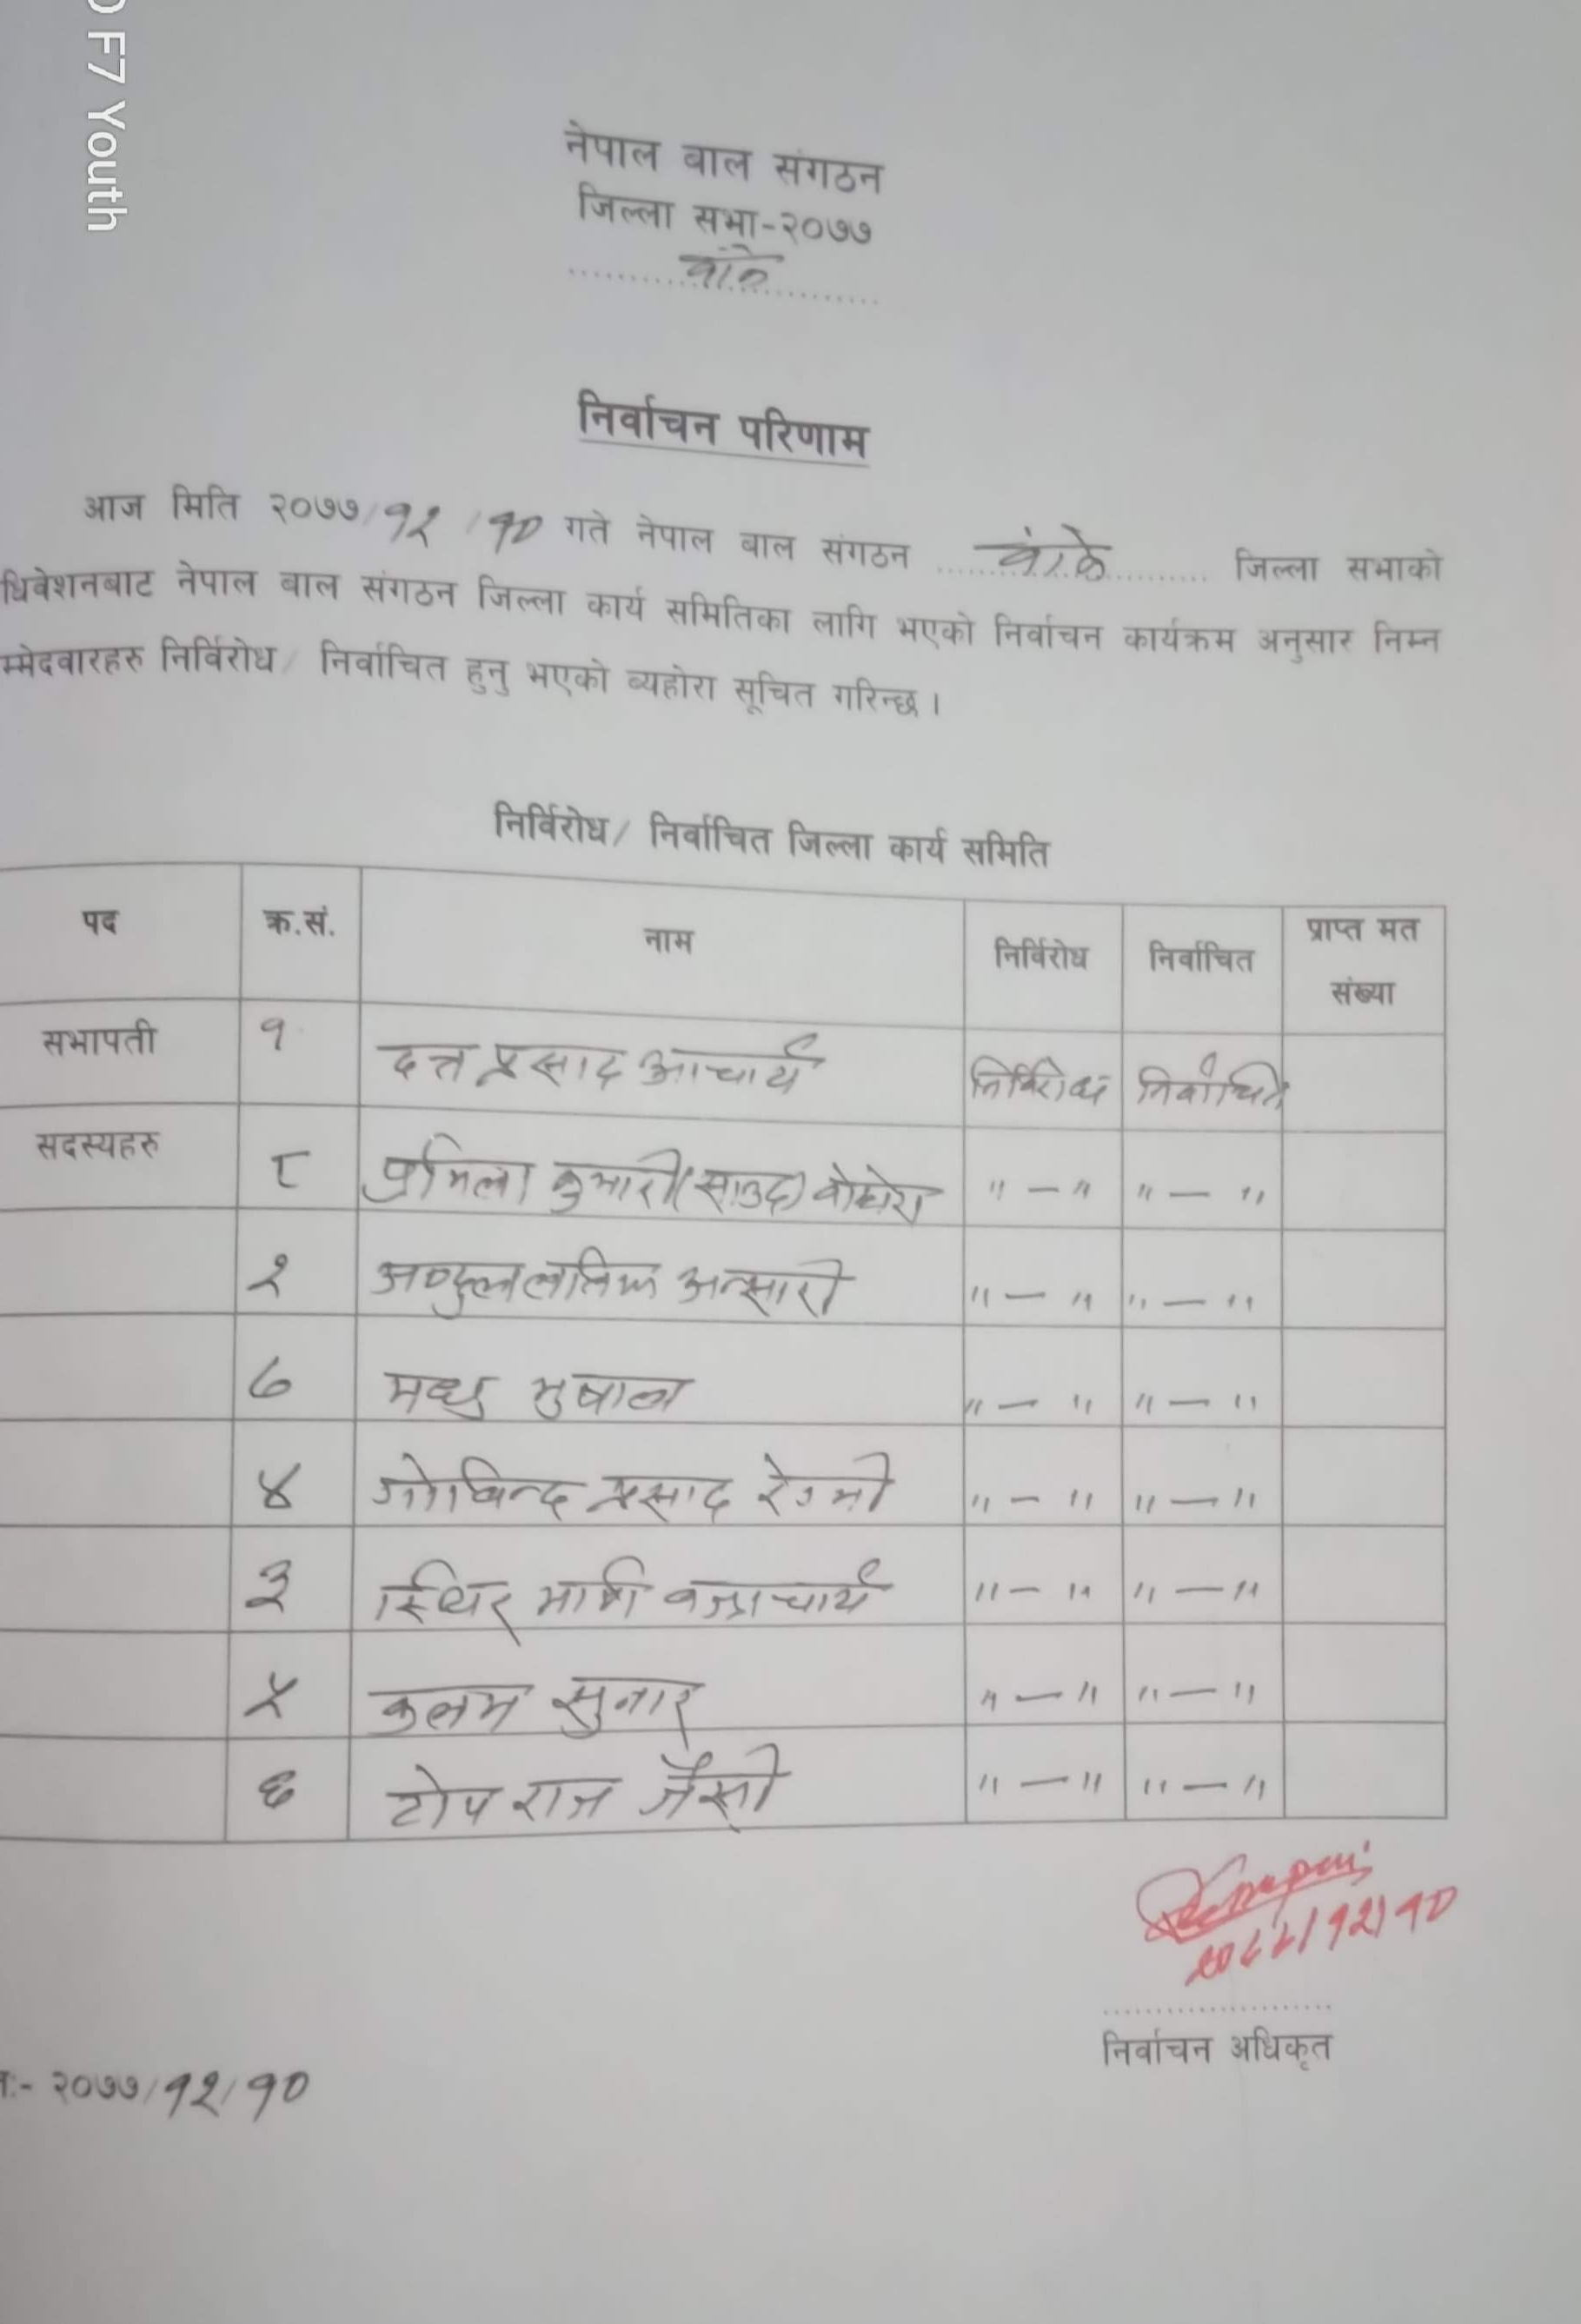 F7 Youth
नेपाल बाल संगठन
जिल्ला सभा-२०७७
बांके
निर्वाचन परिणाम
आज मिति २०७७/१२/१० गते नेपाल बाल संगठन बांके जिल्ला सभाको
धिवेशनबाट नेपाल बाल संगठन जिल्ला कार्य समितिका लागि भएको निर्वाचन कार्यक्रम अनुसार निम्न
म्मेदवारहरु निर्विरोध/ निर्वाचित हुनु भएको ब्यहोरा सूचित गरिन्छ।
निर्विरोध/ निर्वाचित जिल्ला कार्य समिति
पद क्र.सं. नाम निर्विरोध निर्वाचित प्राप्त मत संख्या
सभापती १ दत्त प्रसाद आचार्य निर्विरोध निर्वाचित
सदस्यहरु ८ प्रमिला कुमारी (साउद) " — " " — "
२ अब्दुल लतिफ अन्सारी " — " " — "
७ मधु भुषाल " — " " — "
४ गोबिन्द प्रसाद रेग्मी " — " " — "
३ स्थिर मणि बज्राचार्य " — " " — "
५ सुनार " — " " — "
६ टोप राज जैसी " — " " — "
२०७७/१२/१०
निर्वाचन अधिकृत
:- २०७७/१२/१०